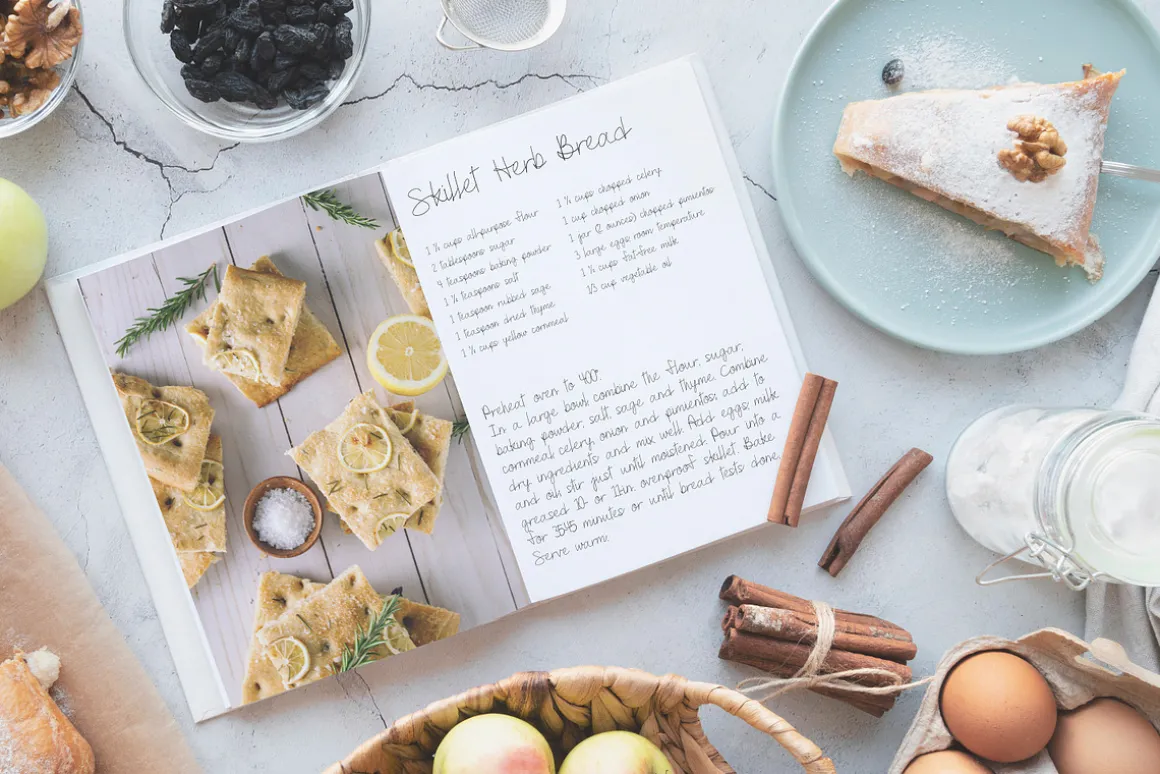 Skillet Herb Bread
1 ½ cups all-purpose flour
2 tablespoons sugar
4 teaspoons baking powder
1 ½ teaspoons salt
1 teaspoon rubbed sage
1 teaspoon dried thyme
1 ½ cups yellow cornmeal
1 ½ cups chopped celery
1 cup chopped onion
1 jar (2 ounces) chopped pimientos
3 large eggs room temperature
1 ½ cups fat-free milk
1/3 cup vegetable oil
Preheat oven to 400°.
In a large bowl, combine the flour, sugar,
baking powder, salt, sage and thyme. Combine
cornmeal, celery, onion and pimientos; add to
dry ingredients and mix well. Add eggs, milk
and oil; stir just until moistened. Pour into a
greased 10- or 11-in. ovenproof skillet. Bake
for 35-45 minutes or until bread tests done.
Serve warm.